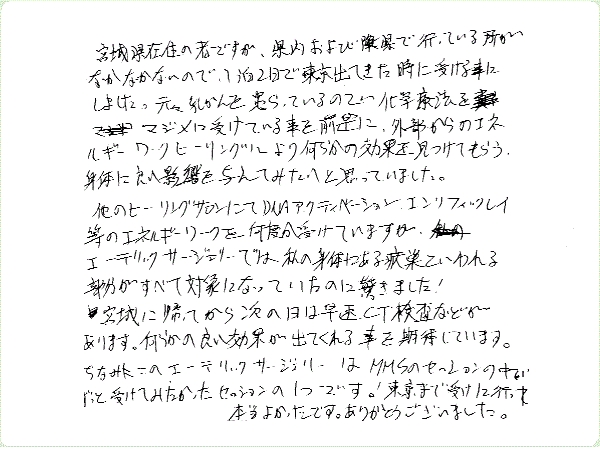 宮城県在住の者ですが、県内および隣県で行っている所が
なかなかないので、1泊2日で東京出てきた時に受ける事に
しました。元々乳がんを患らっているので 化学療法を
マジメに受けている事を前提に、外部からのエネ
ルギーワークヒーリングにより何らかの効果を見つけてもらう、
身体に良い影響を与えてみたいと思っていました。
他のヒーリングサロンにてDNAアクティベーション、エンソフィックレイ
等のエネルギーワークを何度か受けていますが、
エーテリックサージェリーでは、私の身体にある疾患といわれる
部分がすべて対象になっていたのに驚きました!
宮城に帰ってから次の日は早速CT検査などが
あります。何らかの良い効果が出てくれる事を期待しています。
ちなみにこのエーテリックサージェリーはMMSのセッションの中で
ずっと受けてみたかったセッションの1つです。!東京まで受けに行って
本当よかったです。ありがとうございました。